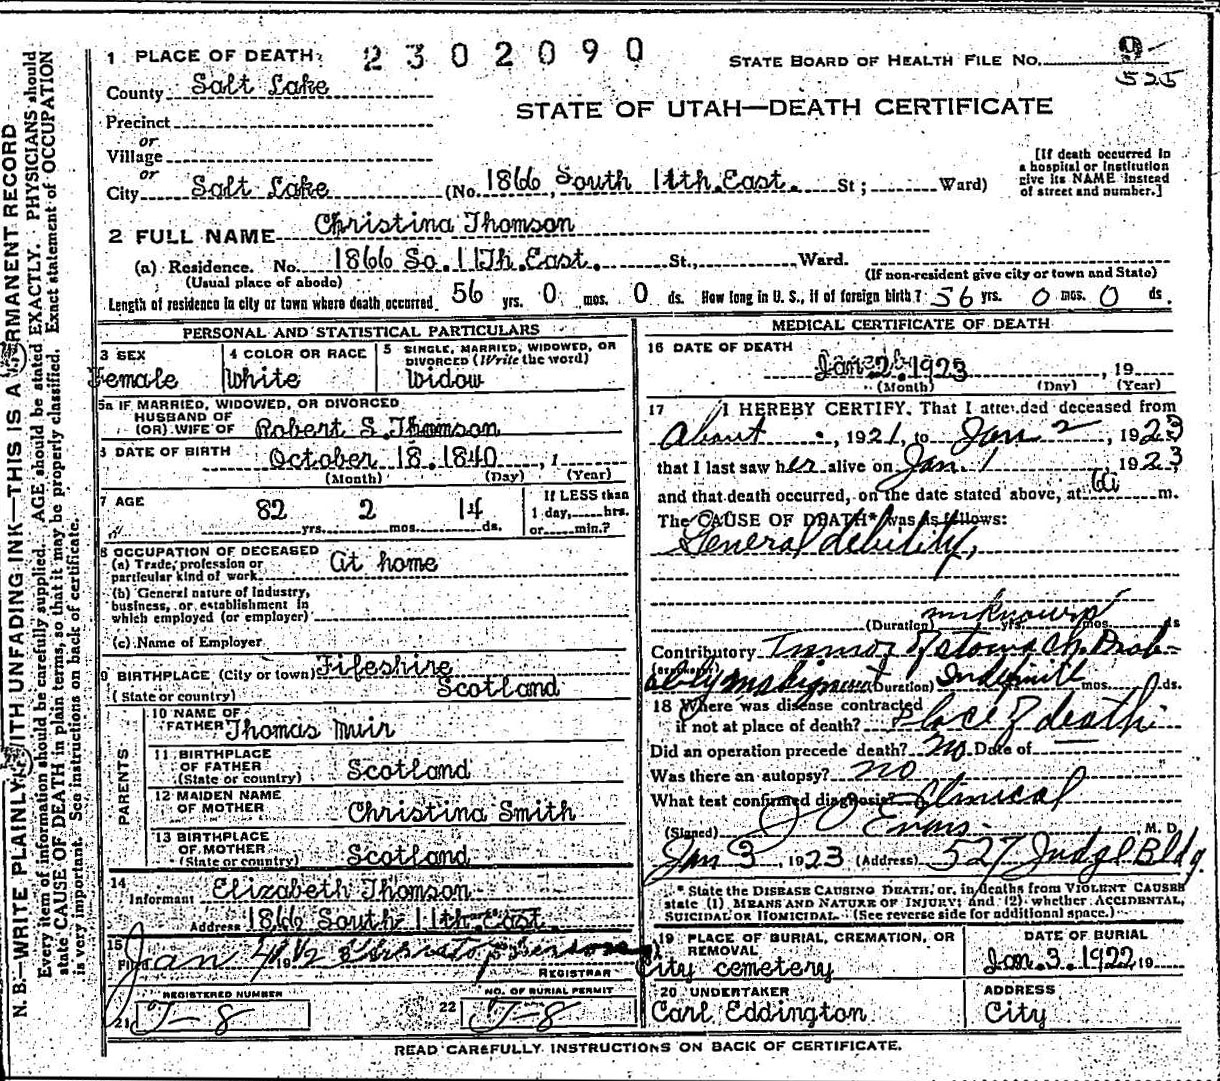 1 PLACE OF DEATH: 2302090 STATE BOARD OF HEALTH FILE No. 9-
525
County Salt Lake
STATE OF UTAH—DEATH CERTIFICATE
Precinct
or
Village
or
City Salt Lake (No. 1866 South 11th East. St; Ward)
[If death occurred in a hospital or institution give its NAME instead of street and number.]
2 FULL NAME Christina Thomson
(a) Residence. No. 1866 So. 11Th. East. St., Ward.
(Usual place of abode) (If non-resident give city or town and State)
Length of residence in city or town where death occurred 56 yrs. 0 mos. 0 ds. How long in U. S., if of foreign birth? 56 yrs. 0 mos. 0 ds.
PERSONAL AND STATISTICAL PARTICULARS
3 SEX 4 COLOR OR RACE 5 SINGLE, MARRIED, WIDOWED, OR DIVORCED (Write the word)
Female White Widow
5a IF MARRIED, WIDOWED, OR DIVORCED
HUSBAND OF
(OR) WIFE OF Robert S. Thomson
6 DATE OF BIRTH October 18. 1840, 1
(Month) (Day) (Year)
7 AGE 82 yrs. 2 mos. 14 ds. If LESS than 1 day, hrs. or min.?
8 OCCUPATION OF DECEASED
(a) Trade, profession or particular kind of work At home
(b) General nature of Industry, business, or establishment in which employed (or employer)
(c) Name of Employer
9 BIRTHPLACE (City or town) Fifeshire
(State or country) Scotland
PARENTS
10 NAME OF FATHER Thomas Muir
11 BIRTHPLACE OF FATHER (State or country) Scotland
12 MAIDEN NAME OF MOTHER Christina Smith
13 BIRTHPLACE OF MOTHER (State or country) Scotland
14
Informant Elizabeth Thomson
Address 1866 South 11th East.
15
Filed Jan 4 19
REGISTRAR
REGISTERED NUMBER
21 J-8
NO. OF BURIAL PERMIT
22 J-8
MEDICAL CERTIFICATE OF DEATH
16 DATE OF DEATH
Jan 2. 1923, 19
(Month) (Day) (Year)
17 I HEREBY CERTIFY, That I attended deceased from
About, 1921, to Jan 2, 1923
that I last saw her alive on Jan. 1 1923
and that death occurred, on the date stated above, at 6a m.
The CAUSE OF DEATH* was as follows:
General debility,
(Duration) unknown yrs. mos. ds
Contributory Tumor of stomach. Prob-
ably malignant (Duration) Indefinite mos. ds.
18 Where was disease contracted
if not at place of death? Place of death
Did an operation precede death? No. Date of
Was there an autopsy? no
What test confirmed diagnosis? Clinical
(Signed) J O Evans M. D.
Jan 3, 1923 (Address) 527 Judge Bldg.
* State the DISEASE CAUSING DEATH, or, in deaths from VIOLENT CAUSES
state (1) MEANS AND NATURE OF INJURY; and (2) whether ACCIDENTAL,
SUICIDAL or HOMICIDAL. (See reverse side for additional space.)
19 PLACE OF BURIAL, CREMATION, OR REMOVAL DATE OF BURIAL
City cemetery Jan. 3. 1922 19
20 UNDERTAKER ADDRESS
Carl Eddington City
READ CAREFULLY INSTRUCTIONS ON BACK OF CERTIFICATE.
N. B.—WRITE PLAINLY WITH UNFADING INK—THIS IS A PERMANENT RECORD
Every item of information should be carefully supplied. AGE should be stated EXACTLY. PHYSICIANS should
state CAUSE OF DEATH in plain terms, so that it may be properly classified. Exact statement of OCCUPATION
is very important. See instructions on back of certificate.